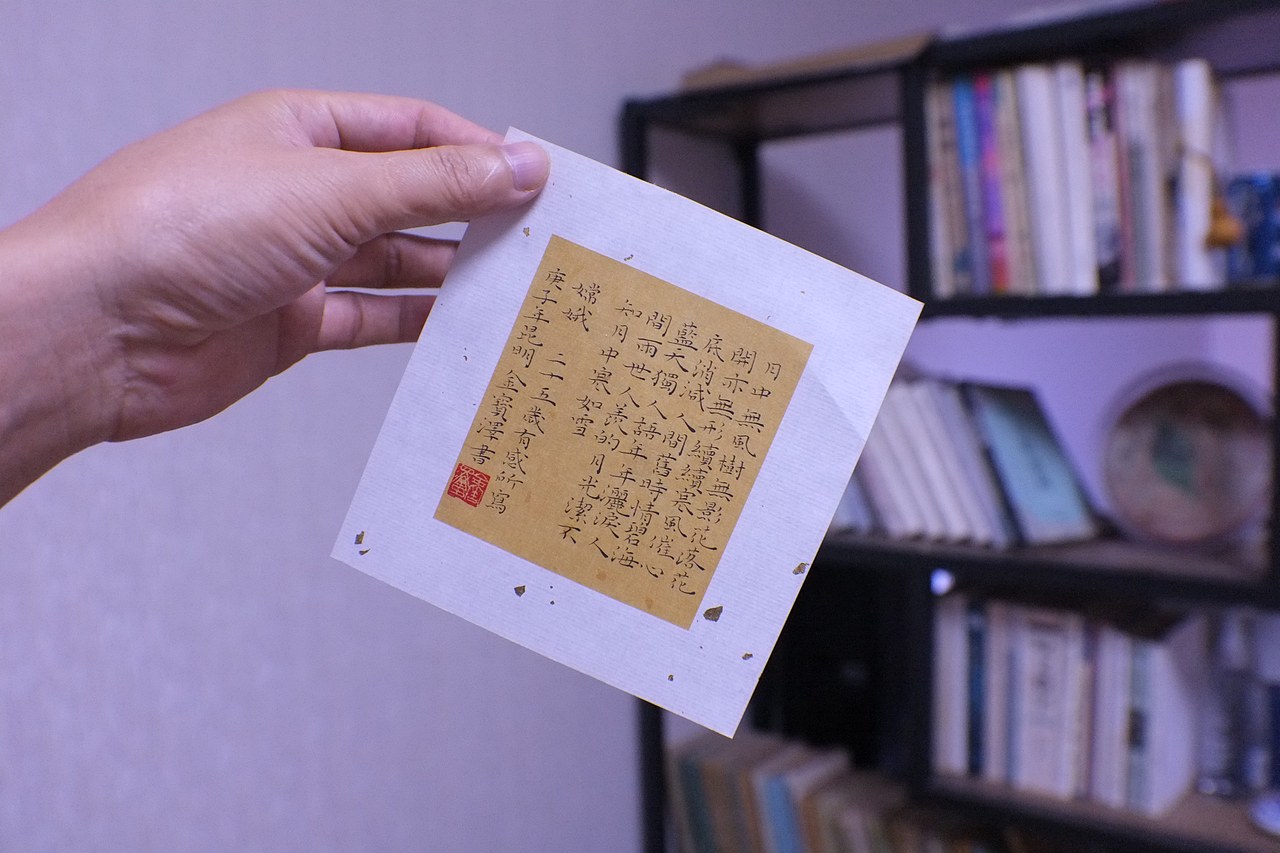 月中無風樹無影花落花
開亦無形續續寒風催心
底消減人間舊時情碧海
藍天獨人語年年灑淚人
間雨世人羨的月光潔不
知月中寒如雪
嫦娥 二十五歲有感所寫
庚子年昆明金寶澤書